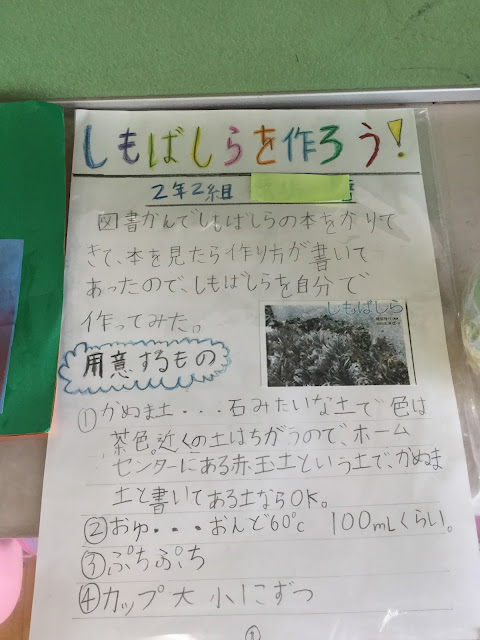 しもばしらを作ろう!
2年2組
図書かんでしもばしらの本をかりて
きて、本を見たら作り方が書いて
あったので、しもばしらを自分で
作ってみた。
しもばしら
用意するもの
①かぬま土・・・石みたいな土で色は
茶色。近くの土はちがうので、ホーム
センターにある赤玉土という土で、かぬま
土と書いてある土ならOK。
②おゆ・・・おんど60℃ 100mLくらい。
③ぷちぷち
④カップ大 小1こずつ
①